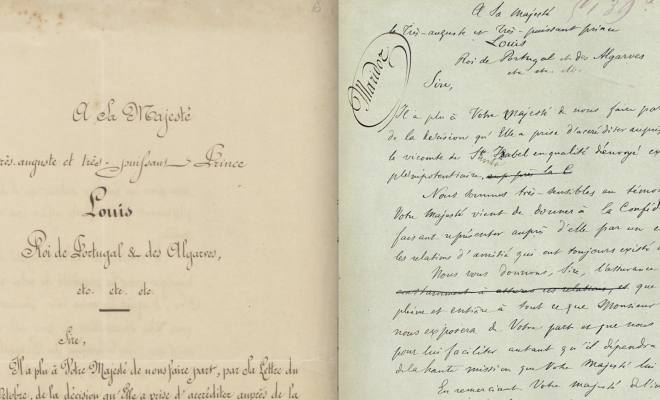 A Sa Majesté
très-auguste et très-puissant Prince
Louis
Roi de Portugal & des Algarves,
etc. etc. etc.
Sire,
Il a plu à Votre Majesté de nous faire part, par Sa Lettre du
Octobre, de la décision qu'Elle a prise d'accréditer auprès de la
A Sa Majesté
le Très-auguste et Très-puissant prince
Louis
Roi de Portugal et des Algarves
etc etc. etc.
Mardoz
Sire,
Il a plu à Votre Majesté de nous faire par
de la décision qu'Elle a prise d'accréditer auprès
le vicomte de Sta Isabel en qualité d'envoyé ex
plénipotentiaire, la C
Nous sommes très-sensibles au témoi
Votre Majesté vient de donner à la Conféd
faisant représenter auprès d'elle par un e
les relations d'amitié qui ont toujours existé e
Nous vous donnons, Sire, l'assurance
constamment à ces relations, et que
pleine et entière à tout ce que Monsieur
nous exposera de Votre part et que nous
pour lui faciliter autant qu'il dépendra
de la haute mission que Votre Majesté lui
En remerciant Votre majesté de l'in